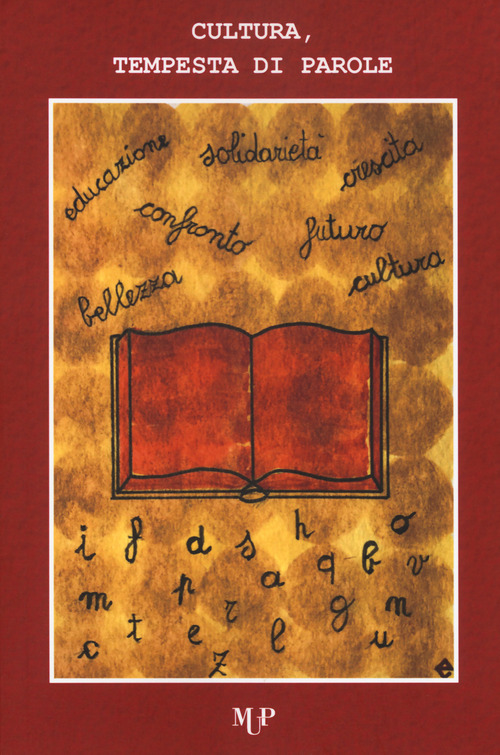 CULTURA,
TEMPESTA DI PAROLE
educazione solidarietà crescita
confronto futuro
bellezza cultura
i f d s h o
m p a q b v
c t e r l g u n
z e
MUP